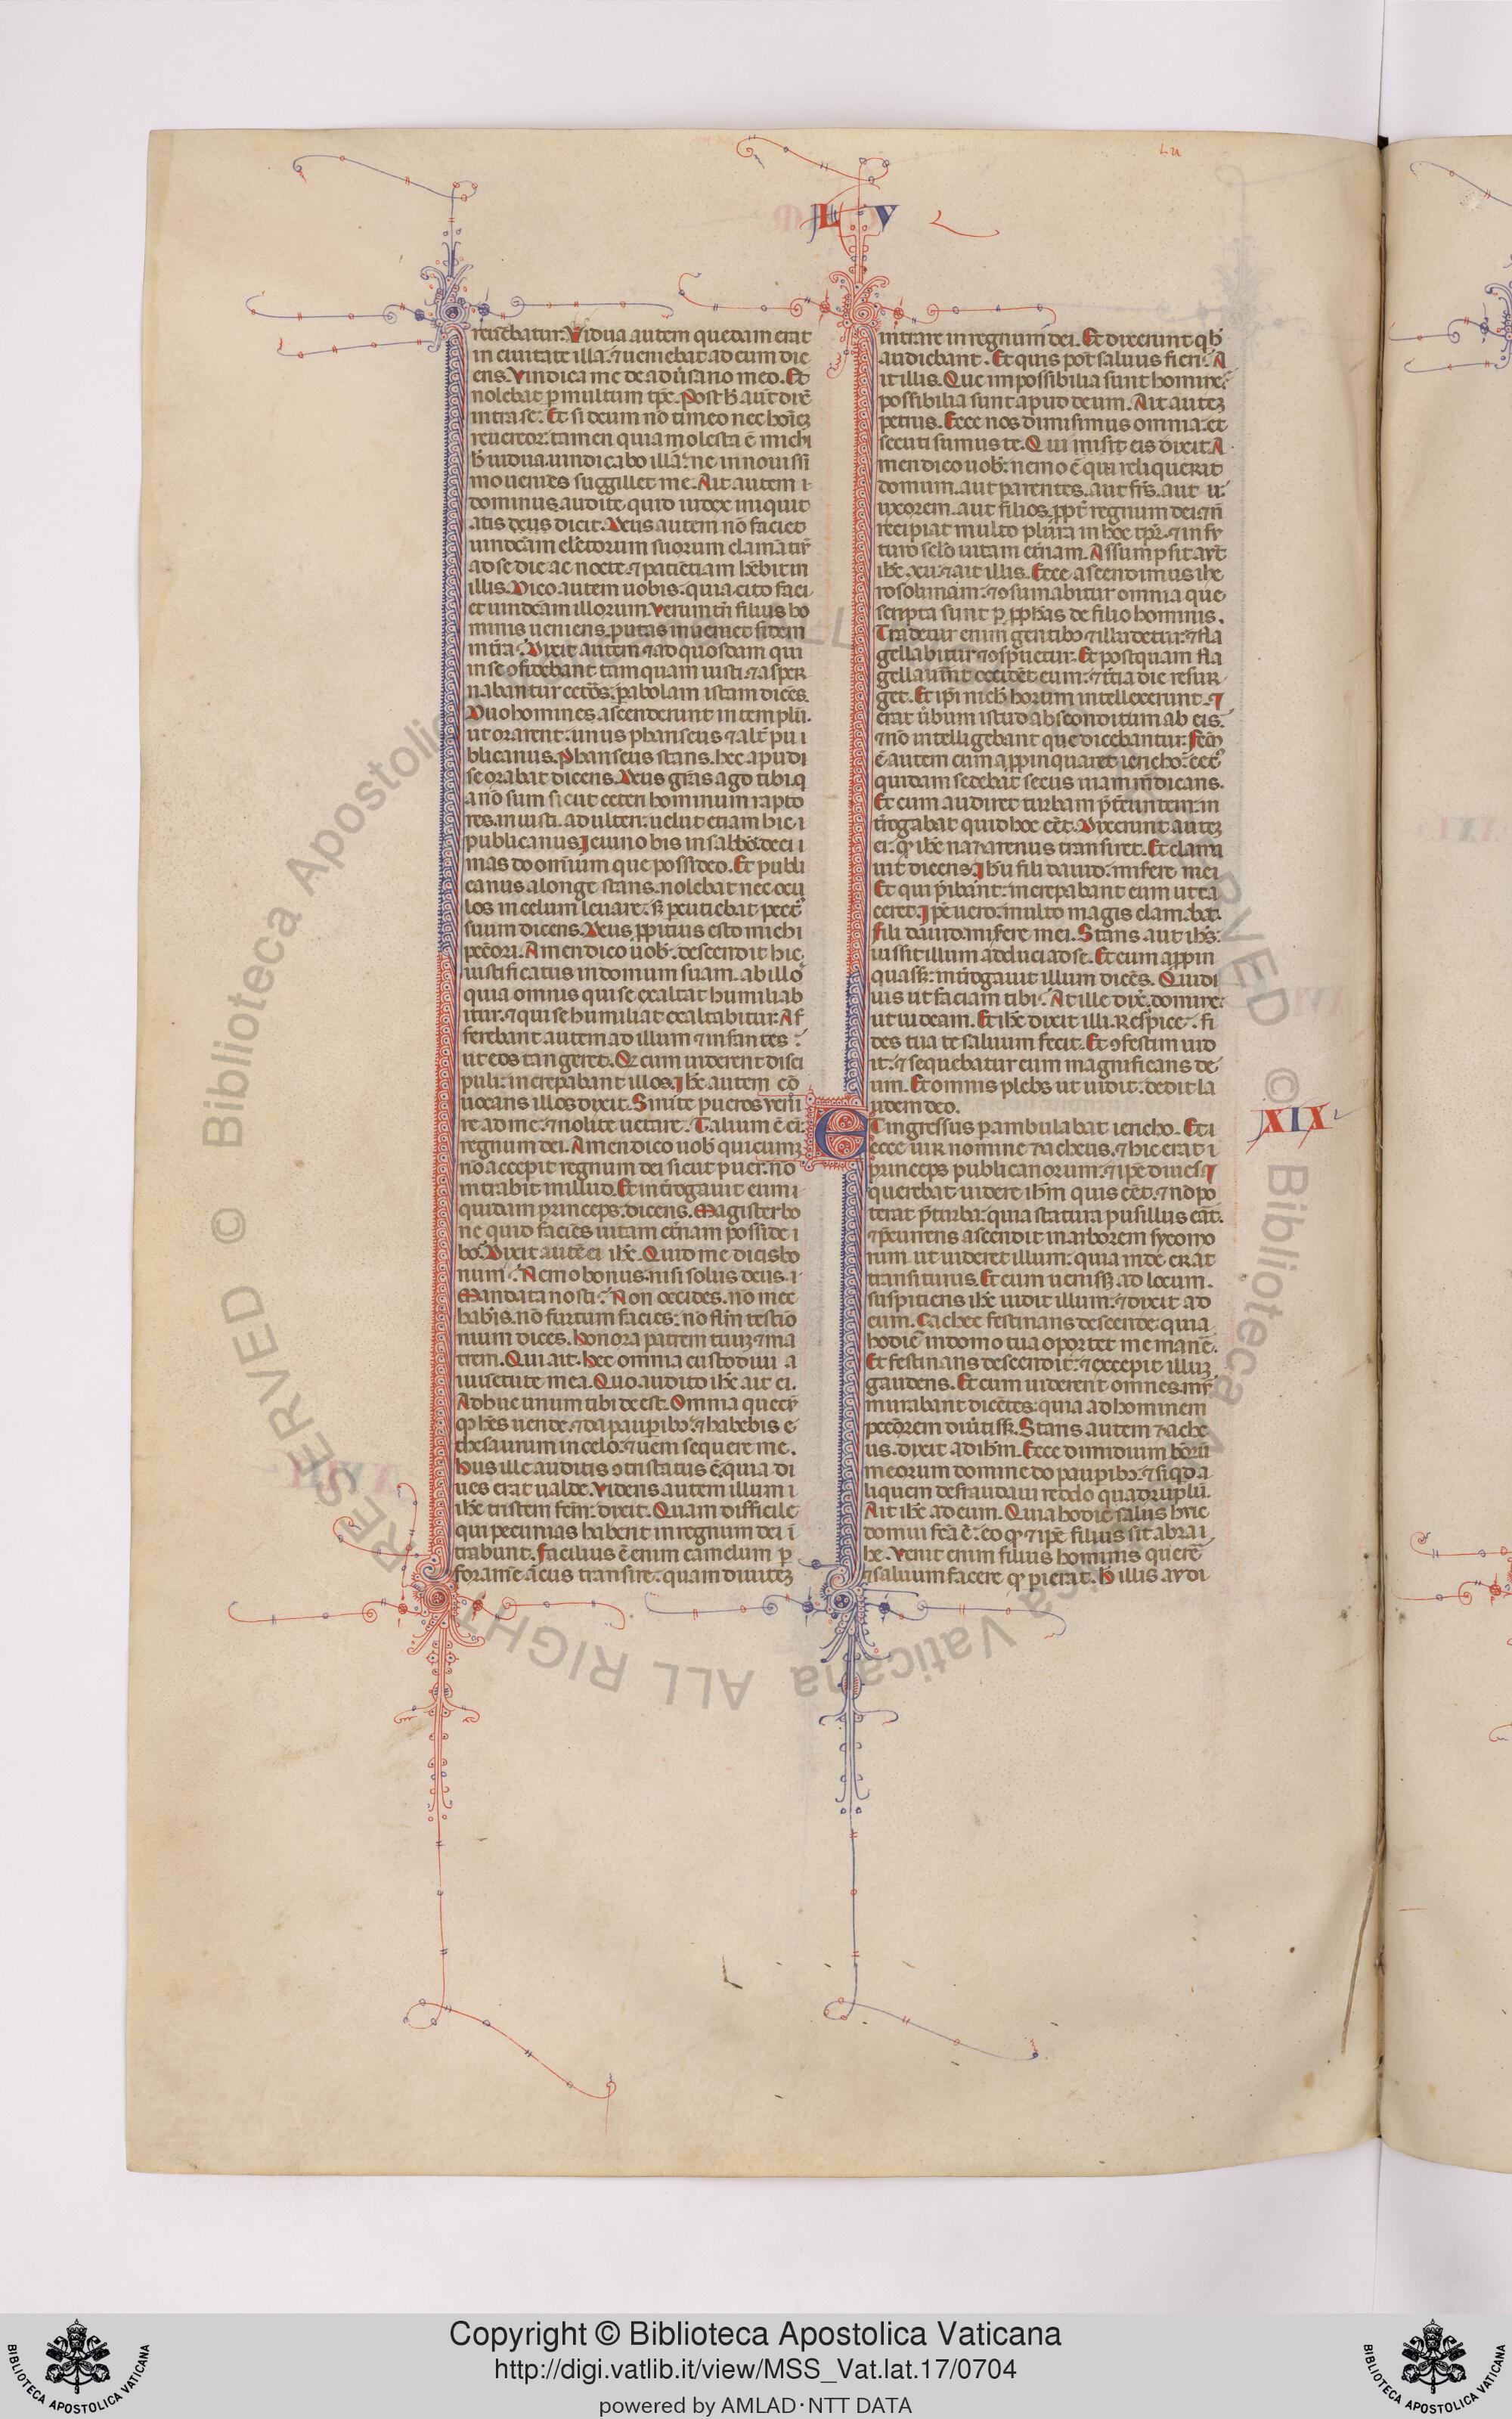 Lu
L V
reuebatur. Vidua autem quedam erat
in ciuitate illa. ⁊ ueniebat ad eum die
ens. Vindica me de adúsario meo. Et
nolebat p multum tp̄e. Post h̄ aut̄ dix̄
intra se. Et si deum nō timeo nec hoīeȝ
reuereor: tamen quia molesta ē michi
h̄ uidua. uindicabo illā. ne in nouissī
mo ueniēs suggillet me. Ait autem i
dominus. audite quid iudex iniquit
atis deus dicit. Deus autem nō faciet
uindc̄am electorum suorum clamātiȳ
ad se die ac nocte. ⁊ patiētiam hēbit in
illis. Dico autem uobis. quia cito faci
et uindc̄am illorum. Verumtn̄ filius ho
minis ueniens. putas inueniet fidem
in tr̄a. Dixit autem ⁊ ad quosdam qui
in se ꝯfidebant tamquam iusti. ⁊ asper
nabantur ceteros. pabolam istam dicēs.
Duo homines ascenderunt in templū.
ut orarent. unus phariseus ⁊ alt̄ pu i
blicanus. Phariseus stans. hec apud i
se orabat dicens. Deus grās ago tibi. q
a nō sum sicut ceteri hominum rapto
res. iniusti. adulteri. uelut etiam hic i
publicanus. Ieiuno bis in sabbō. deci i
mas do omnium que possideo. Et publi
canus a longe stans. nolebat nec ocu
los in celum leuare. sȝ pcutiebat pect̄
suum dicens. Deus ppitius esto michi
pecc̄ori. Amen dico uob̄. descendit hic
iustificatus in domum suam. ab illo
quia omnis qui se exaltat humiliab
itur. ⁊ qui se humiliat exaltabitur. Af
ferebant autem ad illum ⁊ infantes
ut eos tangeret. Qd̄ cum uiderent disci
puli. increpabant illos. Ihc̄ autem cō
uocans illos dixit. Sinite pueros veni
re ad me. ⁊ nolite uetare. Talium ē ei.
regnum dei. Amen dico uob̄ quicumqȝ
nō acceperit regnum dei sicut puer. nō
intrabit in illud. Et introgauit eum i
quidam princeps. dicens. Magister bo
ne quid faciēs uitam et̄nam posside i
bo. Dixit autē ei ihc̄. Quid me dicis bo
num. Nemo bonus. nisi solus deus. i
Mandata nosti. Non occides. nō mec
haberis. nō furtum facies. nō flm̄ testīo
nium dices. Honora patrem tuuȝ ⁊ ma
trem. Qui ait. Hec omnia custodiui a
iuuetute mea. Quo audito ihc̄ ait ei.
Adhuc unum tibi deest. Omnia quecȳ
qȝ hēs uende. ⁊ da paupibȝ. ⁊ habebis e
thesaurum in celo. ⁊ ueni sequere me.
Hiis ille auditis ꝯtristatus ē. quia di
ues erat ualde. Videns autem illum i
ihc̄ tristem fcm̄. dixit. Quam difficile
qui pecunias habent in regnum dei ī
trabunt. Facilius ē enim camelum p
foramē acus transire. quam diuiteȝ
intrare in regnum dei. Et dixerunt q h̄
audiebant. Et quis pōt saluus fieri. A
it illis. Que impossibilia sunt homineȝ
possibilia sunt apud deum. Ait auteȝ
petrus. Ecce nos dimisimus omnia. et
secuti sumus te. Qui misit eis dixit. A
men dico uob̄. nemo ē qui reliquerit
domum. aut parentes. aut frs̄. aut u
uxorem. aut filios. ppt̄ regnum dei. ⁊ n̄
recipiat multo plura in hoc tp̄r. ⁊ in fu
turo sclō uitam et̄nam. Assumpsit aut̄
ihc̄ xii. ⁊ ait illis. Ecce ascendimus ihe
rosolimam. ⁊ ꝯsumabitur omnia que
scripta sunt p pphās de filio hominis.
Tradetur enim gentibȝ ⁊ illudetur. ⁊ fla
gellabitur ⁊ ꝯspuetur. Et postquam fla
gellauerint occidēt eum. ⁊ tr̄tia die resur
get. Et ipī nich̄ horum intellexerunt. ⁊
erat úbum istud absconditum ab eis.
⁊ nō intelligebant que dicebantur. Fcm̄
ē autem cum appinquaret iericho. cec
quidam sedebat secus uiam mēdicans.
Et cum audiret turbam p̄tereuntem. in
trogabat quid hoc eēt. Dixerunt auteȝ
ei. qȝ ihc̄ nazarenus transiret. Et clama
uit dicens. Ihū fili dauid. miserē mei
Et qui p̄ibant. increpabant eum ut ta
ceret. Ipē uero. multo magis clamabat.
Fili dauid. miserē mei. Stans aut ihc̄.
iussit illum adduci ad se. Et cum appin
quassȝ. introgauit illum dicēs. Quid i
uis ut faciam tibi. At ille dix̄. domine.
ut uideam. Et ihc̄ dixit illi. Respice. fi
des tua te saluum fecit. Et ꝯfestim uid
it. ⁊ sequebatur eum magnificans de
um. Et omnis plebs ut uidit. dedit la
udem deo.
XIX
ET ingressus pambulabat iericho. Et i
ecce uir nomine zacheus. ⁊ hic erat i
princeps publicanorum. ⁊ ipē diues. ⁊
querebat uidere ihm̄ quis eēt. ⁊ nō po
terat p̄ turba. quia statura pusillus eāt.
⁊ p̄currens ascendit in arborem sycomo
rum ut uideret illum. quia inde erat
transiturus. Et cum uenissȝ ad locum.
suspitiens ihc̄ uidit illum. ⁊ dixit ad
eum. Zachee festinans descende. quia
hodie in domo tua oportet me manē.
Et festinans descendit. ⁊ excepit illuȝ
gaudens. Et cum uiderent omnes mr̄
murabant dicētes. quia ad hominem
pecc̄orem diútissȝ. Stans autem zache
us. dixit ad ihm̄. Ecce dimidium bonorū
meorum domine do paupibȝ. ⁊ si qd̄ a
liquem defraudaui reddo quadruplū.
Ait ihc̄ ad eum. Quia hodie salus huic
domui fcā ē. eo qȝ ⁊ ipē filius sit abra i
he. Venit enim filius hominis querē
⁊ saluum facere qȝ pierat. H illis audi
© Biblioteca Apostolica Vaticana ALL RIGHTS RESERVED
Copyright © Biblioteca Apostolica Vaticana
http://digi.vatlib.it/view/MSS_Vat.lat.17/0704
powered by AMLAD·NTT DATA
BIBLIOTECA APOSTOLICA VATICANA
BIBLIOTECA APOSTOLICA VATICANA